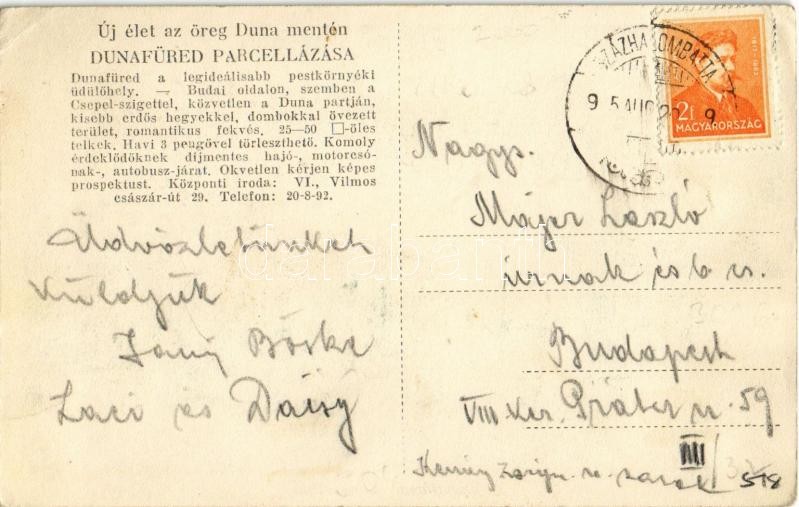 Új élet az öreg Duna mentén
DUNAFÜRED PARCELLÁZÁSA
Dunafüred a legideálisabb pestkörnyéki
üdülőhely. — Budai oldalon, szemben a
Csepel-szigettel, közvetlen a Duna partján,
kisebb erdős hegyekkel, dombokkal övezett
terület, romantikus fekvés. 25—50 □-öles
telkek. Havi 3 pengővel törleszthető. Komoly
érdeklődőknek díjmentes hajó-, motorcsó-
nak-, autobusz-járat. Okvetlen kérjen képes
prospektust. Központi iroda: VI., Vilmos
császár-út 29. Telefon: 20-8-92.
Üdvözletünket
küldjük
Böske
Laci és Daisy
SZÁZHALOMBATTA
2f
MAGYARORSZÁG
Nagys.
Májer László
úrnak és b. cs.
Budapest
VIII. ker. Práter u. 59
III
sarok
518
darabanth